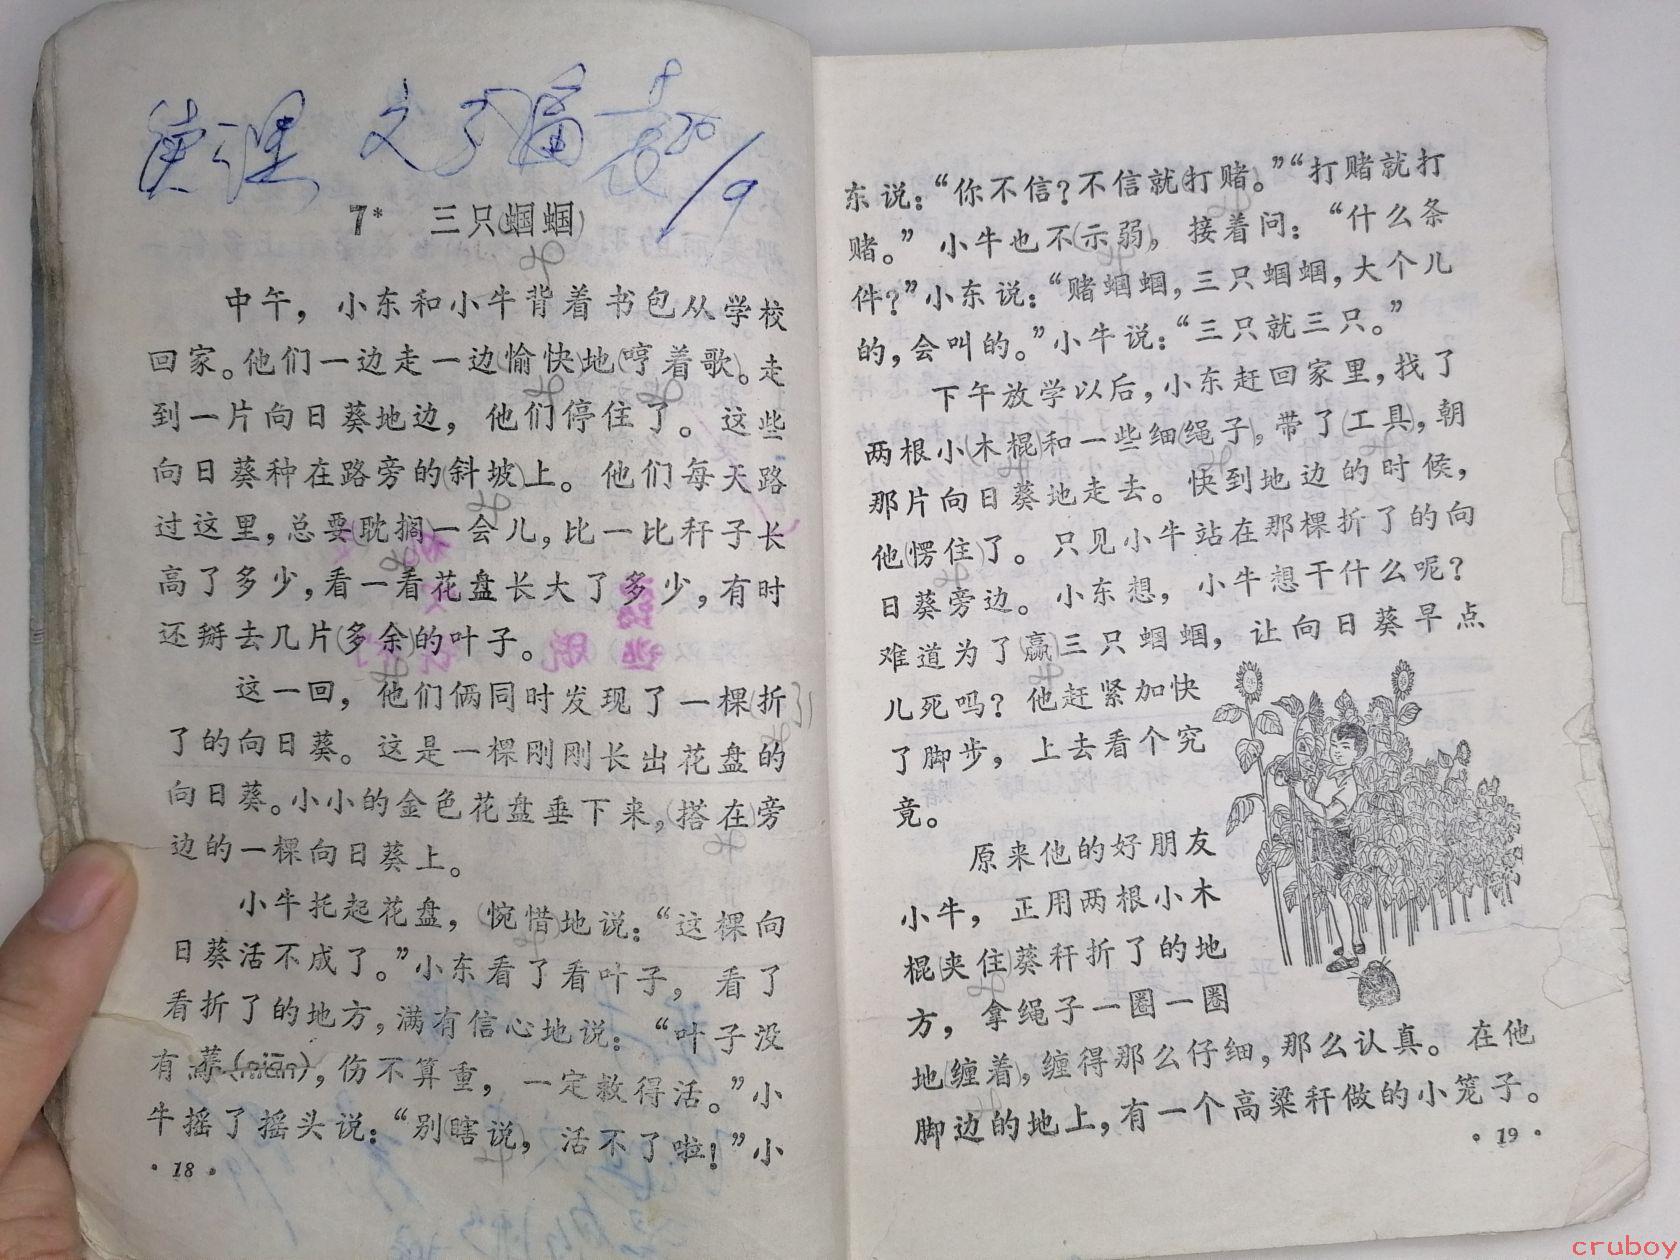 7* 三只蝈蝈
中午，小东和小牛背着书包从学校
回家。他们一边走一边愉快地哼着歌。走
到一片向日葵地边，他们停住了。这些
向日葵种在路旁的斜坡上。他们每天路
过这里，总要耽搁一会儿，比一比秆子长
高了多少，看一看花盘长大了多少，有时
还掰去几片多余的叶子。
这一回，他们俩同时发现了一棵折
了的向日葵。这是一棵刚刚长出花盘的
向日葵。小小的金色花盘垂下来，搭在旁
边的一棵向日葵上。
小牛托起花盘，惋惜地说：“这棵向
日葵活不成了。”小东看了看叶子，看了
看折了的地方，满有信心地说：“叶子没
有蔫(niān)，伤不算重，一定救得活。”小
牛摇了摇头说：“别瞎说，活不了啦！”小
·18·
东说：“你不信？不信就打赌。”“打赌就打
赌。”小牛也不示弱，接着问：“什么条
件？”小东说：“赌蝈蝈，三只蝈蝈，大个儿
的，会叫的。”小牛说：“三只就三只。”
下午放学以后，小东赶回家里，找了
两根小木棍和一些细绳子，带了工具，朝
那片向日葵地走去。快到地边的时候，
他愣住了。只见小牛站在那棵折了的向
日葵旁边。小东想，小牛想干什么呢？
难道为了赢三只蝈蝈，让向日葵早点
儿死吗？他赶紧加快
了脚步，上去看个究
竟。
原来他的好朋友
小牛，正用两根小木
棍夹住葵秆折了的地
方，拿绳子一圈一圈
地缠着，缠得那么仔细，那么认真。在他
脚边的地上，有一个高粱秆做的小笼子。
·19·
cruboy